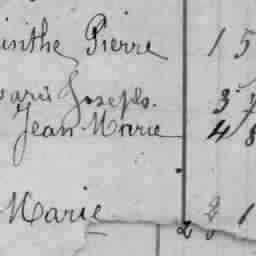 inthe Pierre 1 5
Joseph. 3
Jean Marie 4 8
Marie 2 1
2